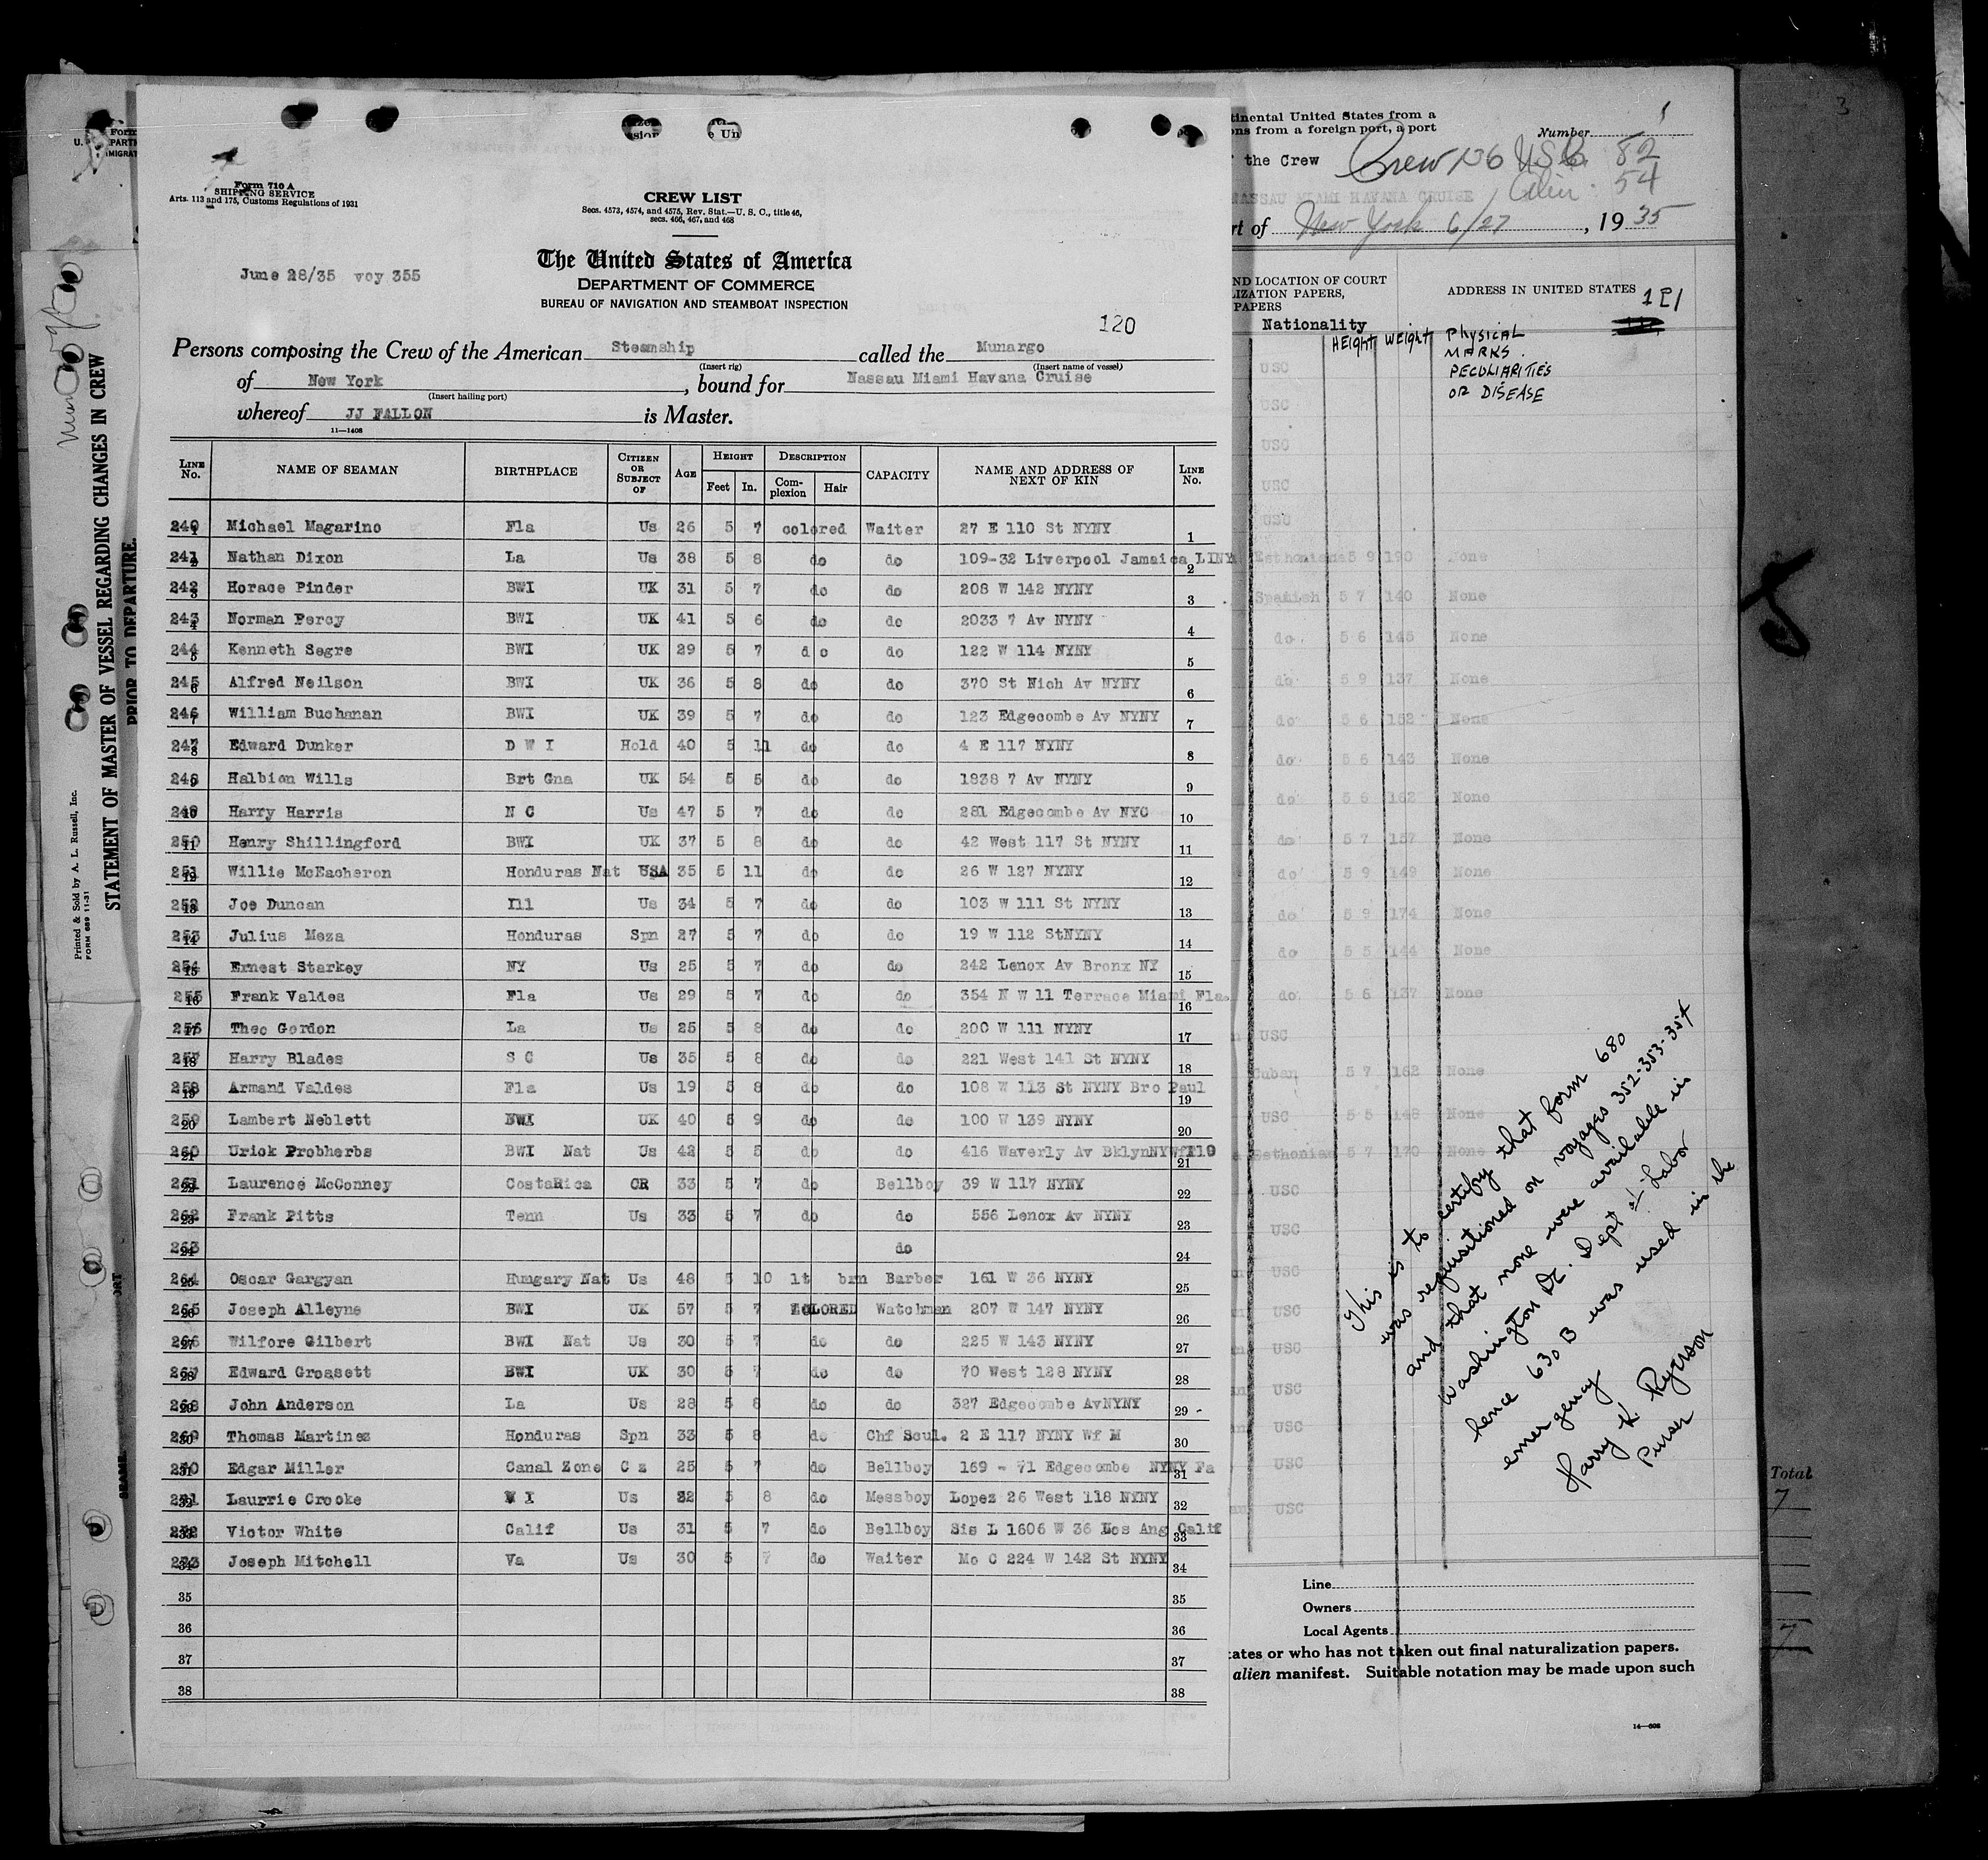 Form 710 A
SHIPPING SERVICE
Arts. 113 and 175, Customs Regulations of 1931
CREW LIST
Secs. 4573, 4574, and 4575, Rev. Stat.—U. S. C., title 46,
secs. 466, 467, and 468
June 28/35 voy 355
The United States of America
DEPARTMENT OF COMMERCE
BUREAU OF NAVIGATION AND STEAMBOAT INSPECTION
120
Persons composing the Crew of the American Steamship called the Munargo
(Insert rig) (Insert name of vessel)
of New York, bound for Nassau Miami Havana Cruise
(Insert hailing port)
whereof JJ FALLON is Master.
11—1408
LINE No. NAME OF SEAMAN BIRTHPLACE CITIZEN OR SUBJECT OF AGE HEIGHT Feet In. DESCRIPTION Complexion Hair CAPACITY NAME AND ADDRESS OF NEXT OF KIN LINE No.
240 1 Michael Magarino Fla Us 26 5 7 colored Waiter 27 E 110 St NYNY 1
241 2 Nathan Dixon La Us 38 5 8 do do 109-32 Liverpool Jamaica LINY 2
242 3 Horace Pinder BWI UK 31 5 7 do do 208 W 142 NYNY 3
243 4 Norman Percy BWI UK 41 5 6 do do 2033 7 Av NYNY 4
244 5 Kenneth Segre BWI UK 29 5 7 d o do 122 W 114 NYNY 5
245 6 Alfred Neilson BWI UK 36 5 8 do do 370 St Nich Av NYNY 6
246 7 William Buchanan BWI UK 39 5 7 do do 123 Edgecombe Av NYNY 7
247 8 Edward Dunker D W I Hold 40 5 11 do do 4 E 117 NYNY 8
248 9 Halbion Wills Brt Gna UK 54 5 5 do do 1838 7 Av NYNY 9
249 10 Harry Harris N C Us 47 5 7 do do 281 Edgecombe Av NYC 10
250 11 Henry Shillingford BWI UK 37 5 8 do do 42 West 117 St NYNY 11
251 12 Willie McEacheron Honduras Nat USA 35 5 11 do do 26 W 127 NYNY 12
252 13 Joe Duncan Ill Us 34 5 7 do do 103 W 111 St NYNY 13
253 14 Julius Meza Honduras Spn 27 5 7 do do 19 W 112 StNYNY 14
254 15 Ernest Starkey NY Us 25 5 7 do do 242 Lenox Av Bronx NY 15
255 16 Frank Valdes Fla Us 29 5 7 do do 354 N W 11 Terrace Miami Fla. 16
256 17 Theo Gordon La Us 25 5 8 do do 200 W 111 NYNY 17
257 18 Harry Blades S C Us 35 5 8 do do 221 West 141 St NYNY 18
258 19 Armand Valdes Fla Us 19 5 8 do do 108 W 113 St NYNY Bro Paul 19
259 20 Lambert Neblett BWI UK 40 5 9 do do 100 W 139 NYNY 20
260 21 Urick Probherbs BWI Nat Us 42 5 5 do do 416 Waverly Av BklynNY 21
261 22 Laurence McConney CostaRica CR 33 5 7 do Bellboy 39 W 117 NYNY 22
262 23 Frank Pitts Tenn Us 33 5 7 do do 556 Lenox Av NYNY 23
263 24 do 24
264 25 Oscar Gargyan Hungary Nat Us 48 5 10 lt brn Barber 161 W 36 NYNY 25
265 26 Joseph Alleyne BWI UK 57 5 7 COLORED Watchman 207 W 147 NYNY 26
266 27 Wilfore Gilbert BWI Nat Us 30 5 7 do do 225 W 143 NYNY 27
267 28 Edward Grossett BWI UK 30 5 7 do do 70 West 128 NYNY 28
268 29 John Anderson La Us 28 5 8 do do 327 Edgecombe AvNYNY 29
269 30 Thomas Martinez Honduras Spn 33 5 8 do Chf Scul. 2 E 117 NYNY Wf M 30
270 31 Edgar Miller Canal Zone C z 25 5 7 do Bellboy 169 - 71 Edgecombe NYNY Fa 31
271 32 Laurrie Crooke V I Us 32 5 8 do Messboy Lopez 26 West 118 NYNY 32
272 33 Victor White Calif Us 31 5 7 do Bellboy Sis L 1606 W 36 Los Ang Calif 33
273 34 Joseph Mitchell Va Us 30 5 7 do Waiter Mo C 224 W 142 St NYNY 34
35 35
36 36
37 37
38 38
STATEMENT OF MASTER OF VESSEL REGARDING CHANGES IN CREW
PRIOR TO DEPARTURE.
Printed & Sold by A. L. Russell, Inc.
FORM 689 11-31
tinental United States from a
ons from a foreign port, a port
Number 1
the Crew Crew 136 USC 82
Alien 54
NASSAU MIAMI HAVANA CRUISE
rt of New York 6/27, 1935
ND LOCATION OF COURT
LIZATION PAPERS,
PAPERS
ADDRESS IN UNITED STATES
121
Nationality HEIGHT WEIGHT PHYSICAL
MARKS.
PECULIARITIES
OR DISEASE
USC
USC
USC
USC
USC
Esthonian 5 9 190 None
Spanish 5 7 140 None
do 5 6 145 None
do 5 9 137 None
do 5 6 152 None
do 5 6 143 None
do 5 6 162 None
do 5 7 157 None
do 5 9 149 None
do 5 9 174 None
do 5 5 144 None
do 5 6 137 None
USC
Cuban 5 7 162 None
USC 5 5 148 None
Esthonian 5 7 170 None
USC
USC
USC
USC
USC
USC
USC
USC
USC
This is to certify that form 680
was requisitioned on voyages 352-353-354
and that none were available in
Washington DC. Dept of Labor
hence 630 B was used in the
emergency
Harry K Ryerson
Purser
Line
Owners
Local Agents
tates or who has not taken out final naturalization papers.
alien manifest. Suitable notation may be made upon such
14—608
3
Total
7
7